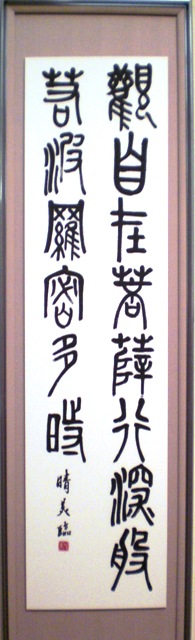 觀自在菩薩行深般
若波羅密多時
晴美臨